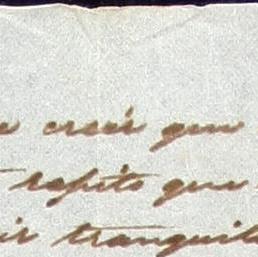 creer que
repito que
ir tranquil